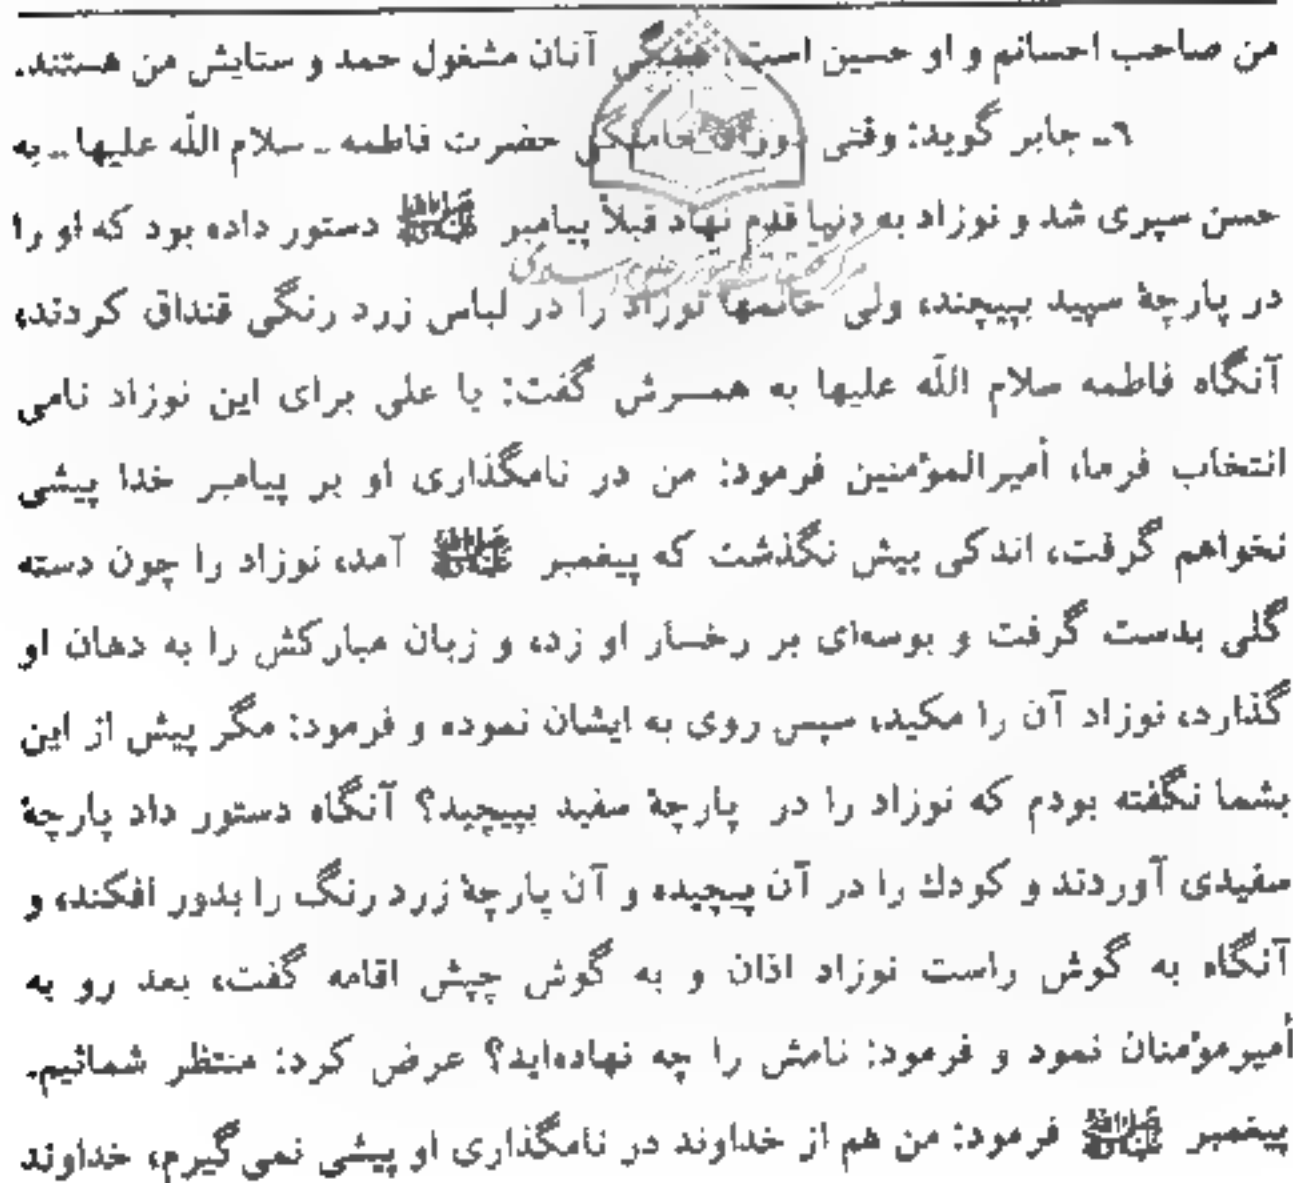 من صاحب احسانم و او حسین است، همگی آنان مشغول حمد و ستایش من هستند.
٦ـ جابر گوید: وقتی دوران حاملگی حضرت فاطمه ـ سلام اللّه علیها ـ به
حسن سپری شد و نوزاد به دنیا قدم نهاد قبلاً پیامبر ﷺ دستور داده بود که او را
مرکز تحقیقات کامپیوتری علوم اسلامی
در پارچهٔ سپید بپیچند، ولی خانمها نوزاد را در لباس زرد رنگی قنداق کردند،
آنگاه فاطمه سلام اللّه علیها به همسرش گفت: یا علی برای این نوزاد نامی
انتخاب فرما، أمیرالمؤمنین فرمود: من در نامگذاری او بر پیامبر خدا پیشی
نخواهم گرفت، اندکی بیش نگذشت که پیغمبر ﷺ آمد، نوزاد را چون دسته
گلی بدست گرفت و بوسه‌ای بر رخسار او زد، و زبان مبارکش را به دهان او
گذارد، نوزاد آن را مکید، سپس روی به ایشان نموده و فرمود: مگر پیش از این
بشما نگفته بودم که نوزاد را در پارچهٔ سفید بپیچید؟ آنگاه دستور داد پارچهٔ
سفیدی آوردند و کودك را در آن پیچیده و آن پارچهٔ زرد رنگ را بدور افکند، و
آنگاه به گوش راست نوزاد اذان و به گوش چپش اقامه گفت، بعد رو به
أمیرمؤمنان نمود و فرمود: نامش را چه نهاده‌اید؟ عرض کرد: منتظر شمائیم.
پیغمبر ﷺ فرمود: من هم از خداوند در نامگذاری او پیشی نمی‌گیرم، خداوند